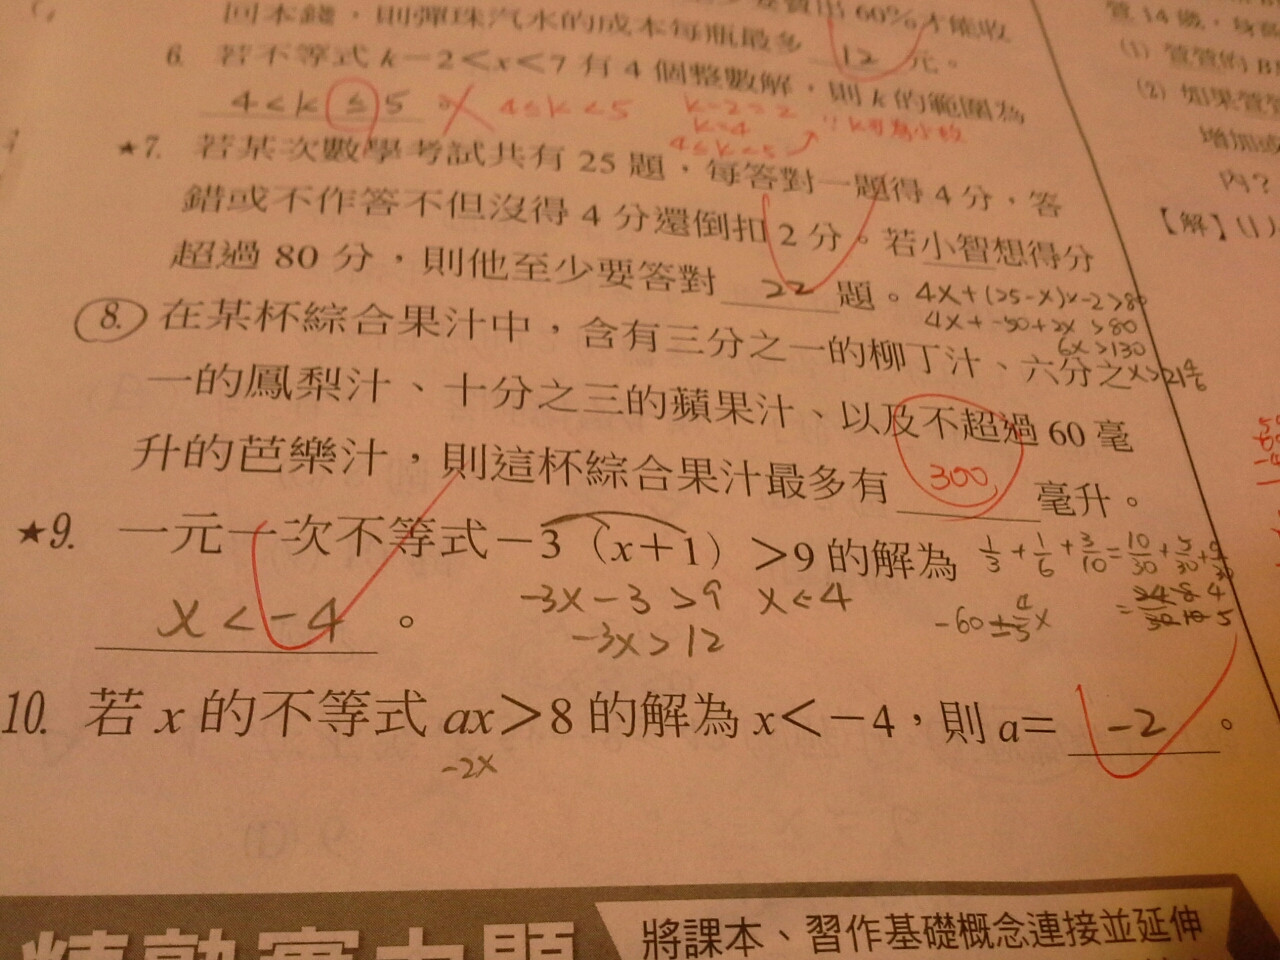 回本錢，則彈珠汽水的成本每瓶最多 12 元。
6. 若不等式 k－2＜x＜7 有 4 個整數解，則 k 的範圍為
4<k≤5 4≤k<5 k-2=2
k=4
4≤k<5
★7. 若某次數學考試共有 25 題，每答對一題得 4 分，答
錯或不作答不但沒得 4 分還倒扣 2 分。若小智想得分
超過 80 分，則他至少要答對 22 題。
4x+(25-x)x-2>80
4x+-50+2x>80
6x>130
8. 在某杯綜合果汁中，含有三分之一的柳丁汁、六分之
一的鳳梨汁、十分之三的蘋果汁、以及不超過 60 毫
升的芭樂汁，則這杯綜合果汁最多有 300 毫升。
★9. 一元一次不等式－3（x＋1）＞9 的解為
x<-4 。
-3x-3>9 x<-4
-3x>12
1/3+1/6+3/10=10/30+5/30+9/30
10. 若 x 的不等式 ax＞8 的解為 x＜－4，則 a＝ -2 。
-2x
將課本、習作基礎概念連接並延伸
管 14 歲，身高
(1) 管管的 B
(2) 如果管管
增加或
內？
【解】(1)